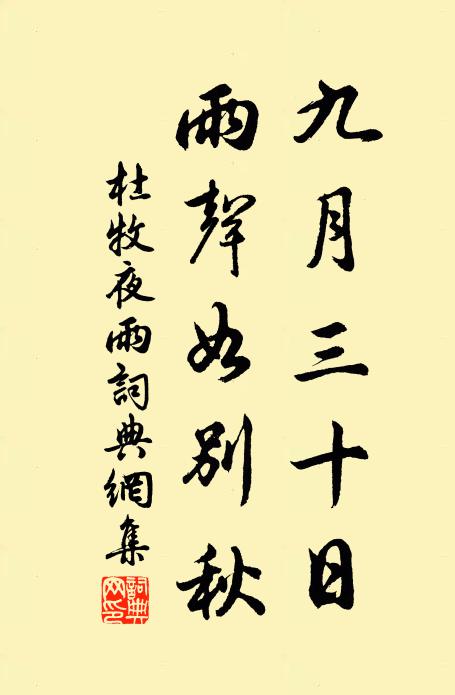 九月三十日
雨聲如別秋
杜牧夜雨詞典網集
詞典網印